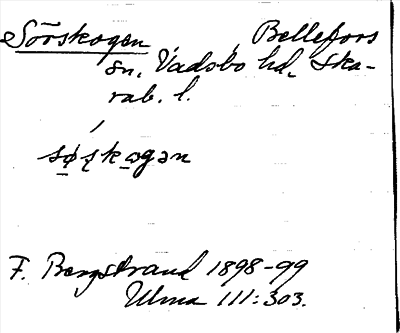 Sörskogen, Bellefors
sn, Vadsbo hd, Ska-
rab. l.
sø̱ʂko̱gən
F. Bergstrand 1898-99
Ulma 111:303.